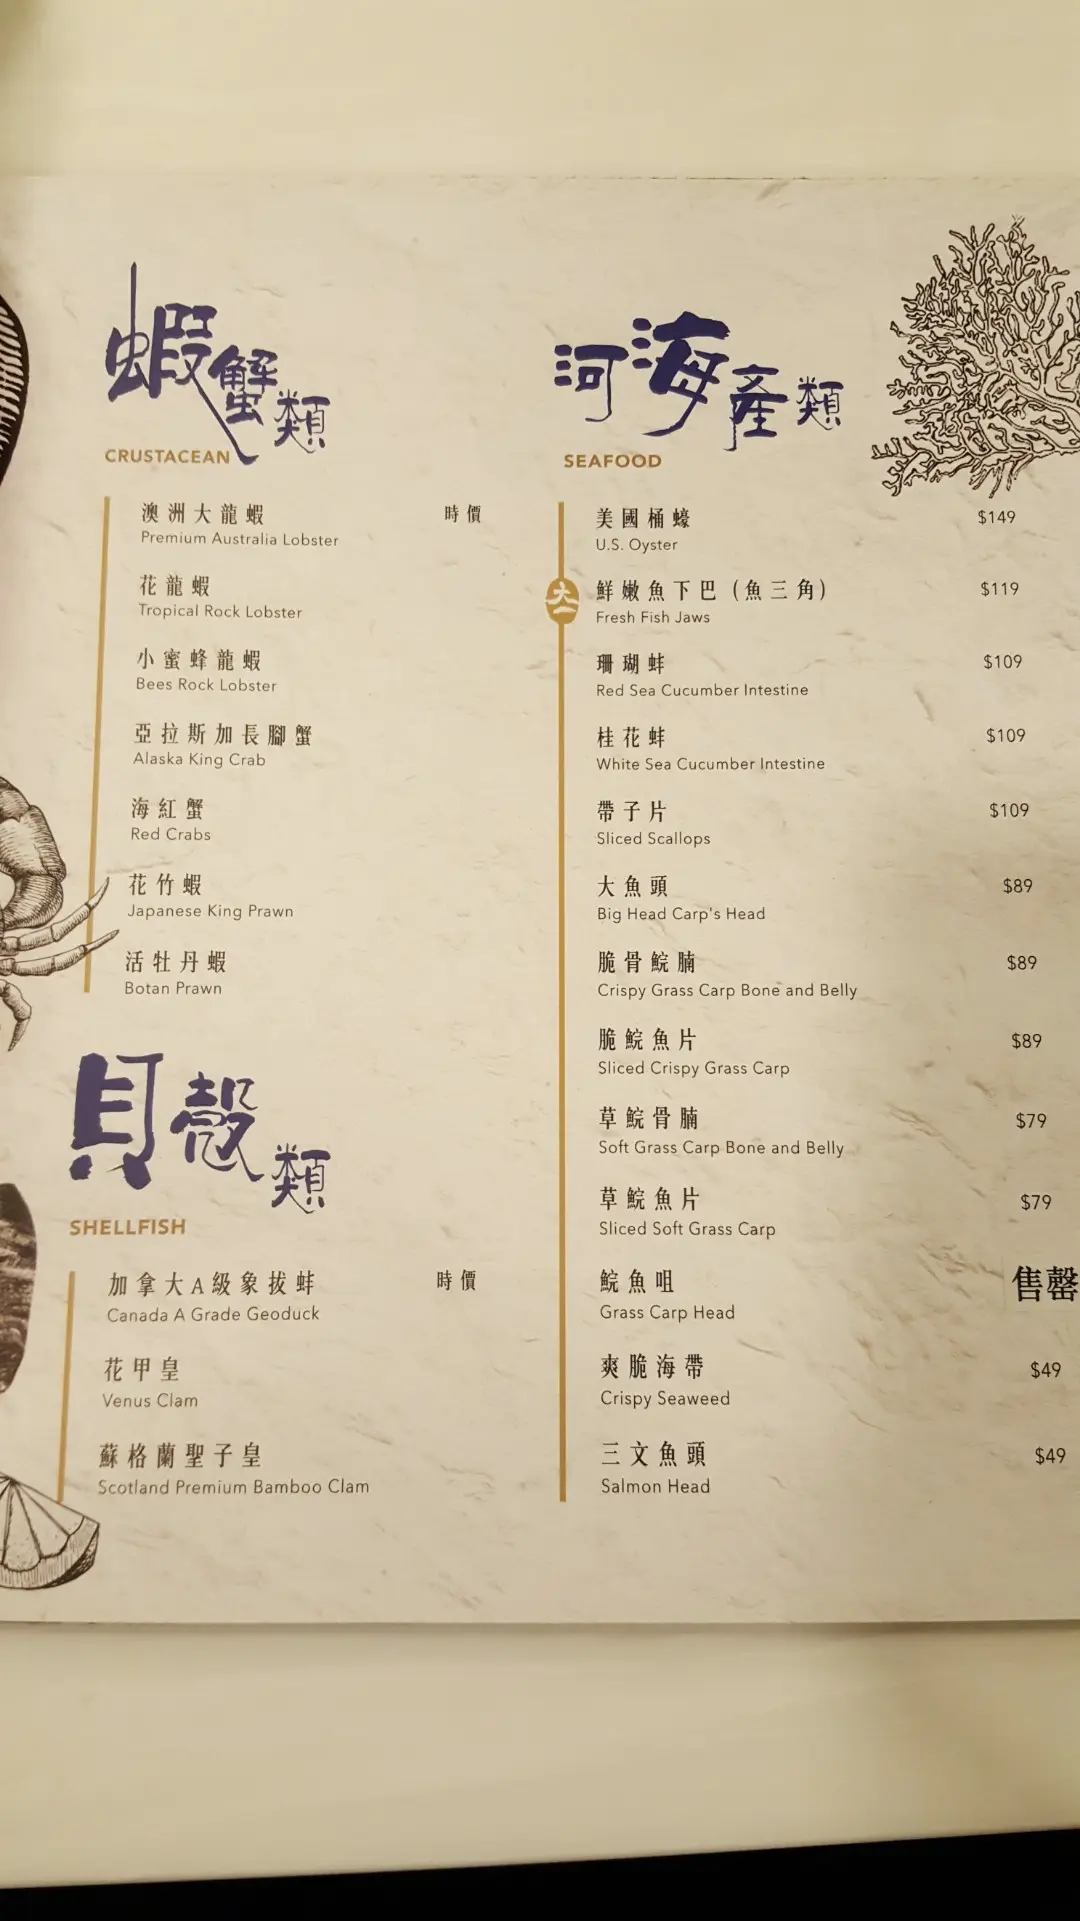 蝦蟹類
CRUSTACEAN
澳洲大龍蝦 時價
Premium Australia Lobster
花龍蝦
Tropical Rock Lobster
小蜜蜂龍蝦
Bees Rock Lobster
亞拉斯加長腳蟹
Alaska King Crab
海紅蟹
Red Crabs
花竹蝦
Japanese King Prawn
活牡丹蝦
Botan Prawn
貝殼類
SHELLFISH
加拿大A級象拔蚌 時價
Canada A Grade Geoduck
花甲皇
Venus Clam
蘇格蘭聖子皇
Scotland Premium Bamboo Clam
河海產類
SEAFOOD
美國桶蠔 $149
U.S. Oyster
大一
鮮嫩魚下巴(魚三角) $119
Fresh Fish Jaws
珊瑚蚌 $109
Red Sea Cucumber Intestine
桂花蚌 $109
White Sea Cucumber Intestine
帶子片 $109
Sliced Scallops
大魚頭 $89
Big Head Carp's Head
脆骨鯇腩 $89
Crispy Grass Carp Bone and Belly
脆鯇魚片 $89
Sliced Crispy Grass Carp
草鯇骨腩 $79
Soft Grass Carp Bone and Belly
草鯇魚片 $79
Sliced Soft Grass Carp
鯇魚咀 售罄
Grass Carp Head
爽脆海帶 $49
Crispy Seaweed
三文魚頭 $49
Salmon Head